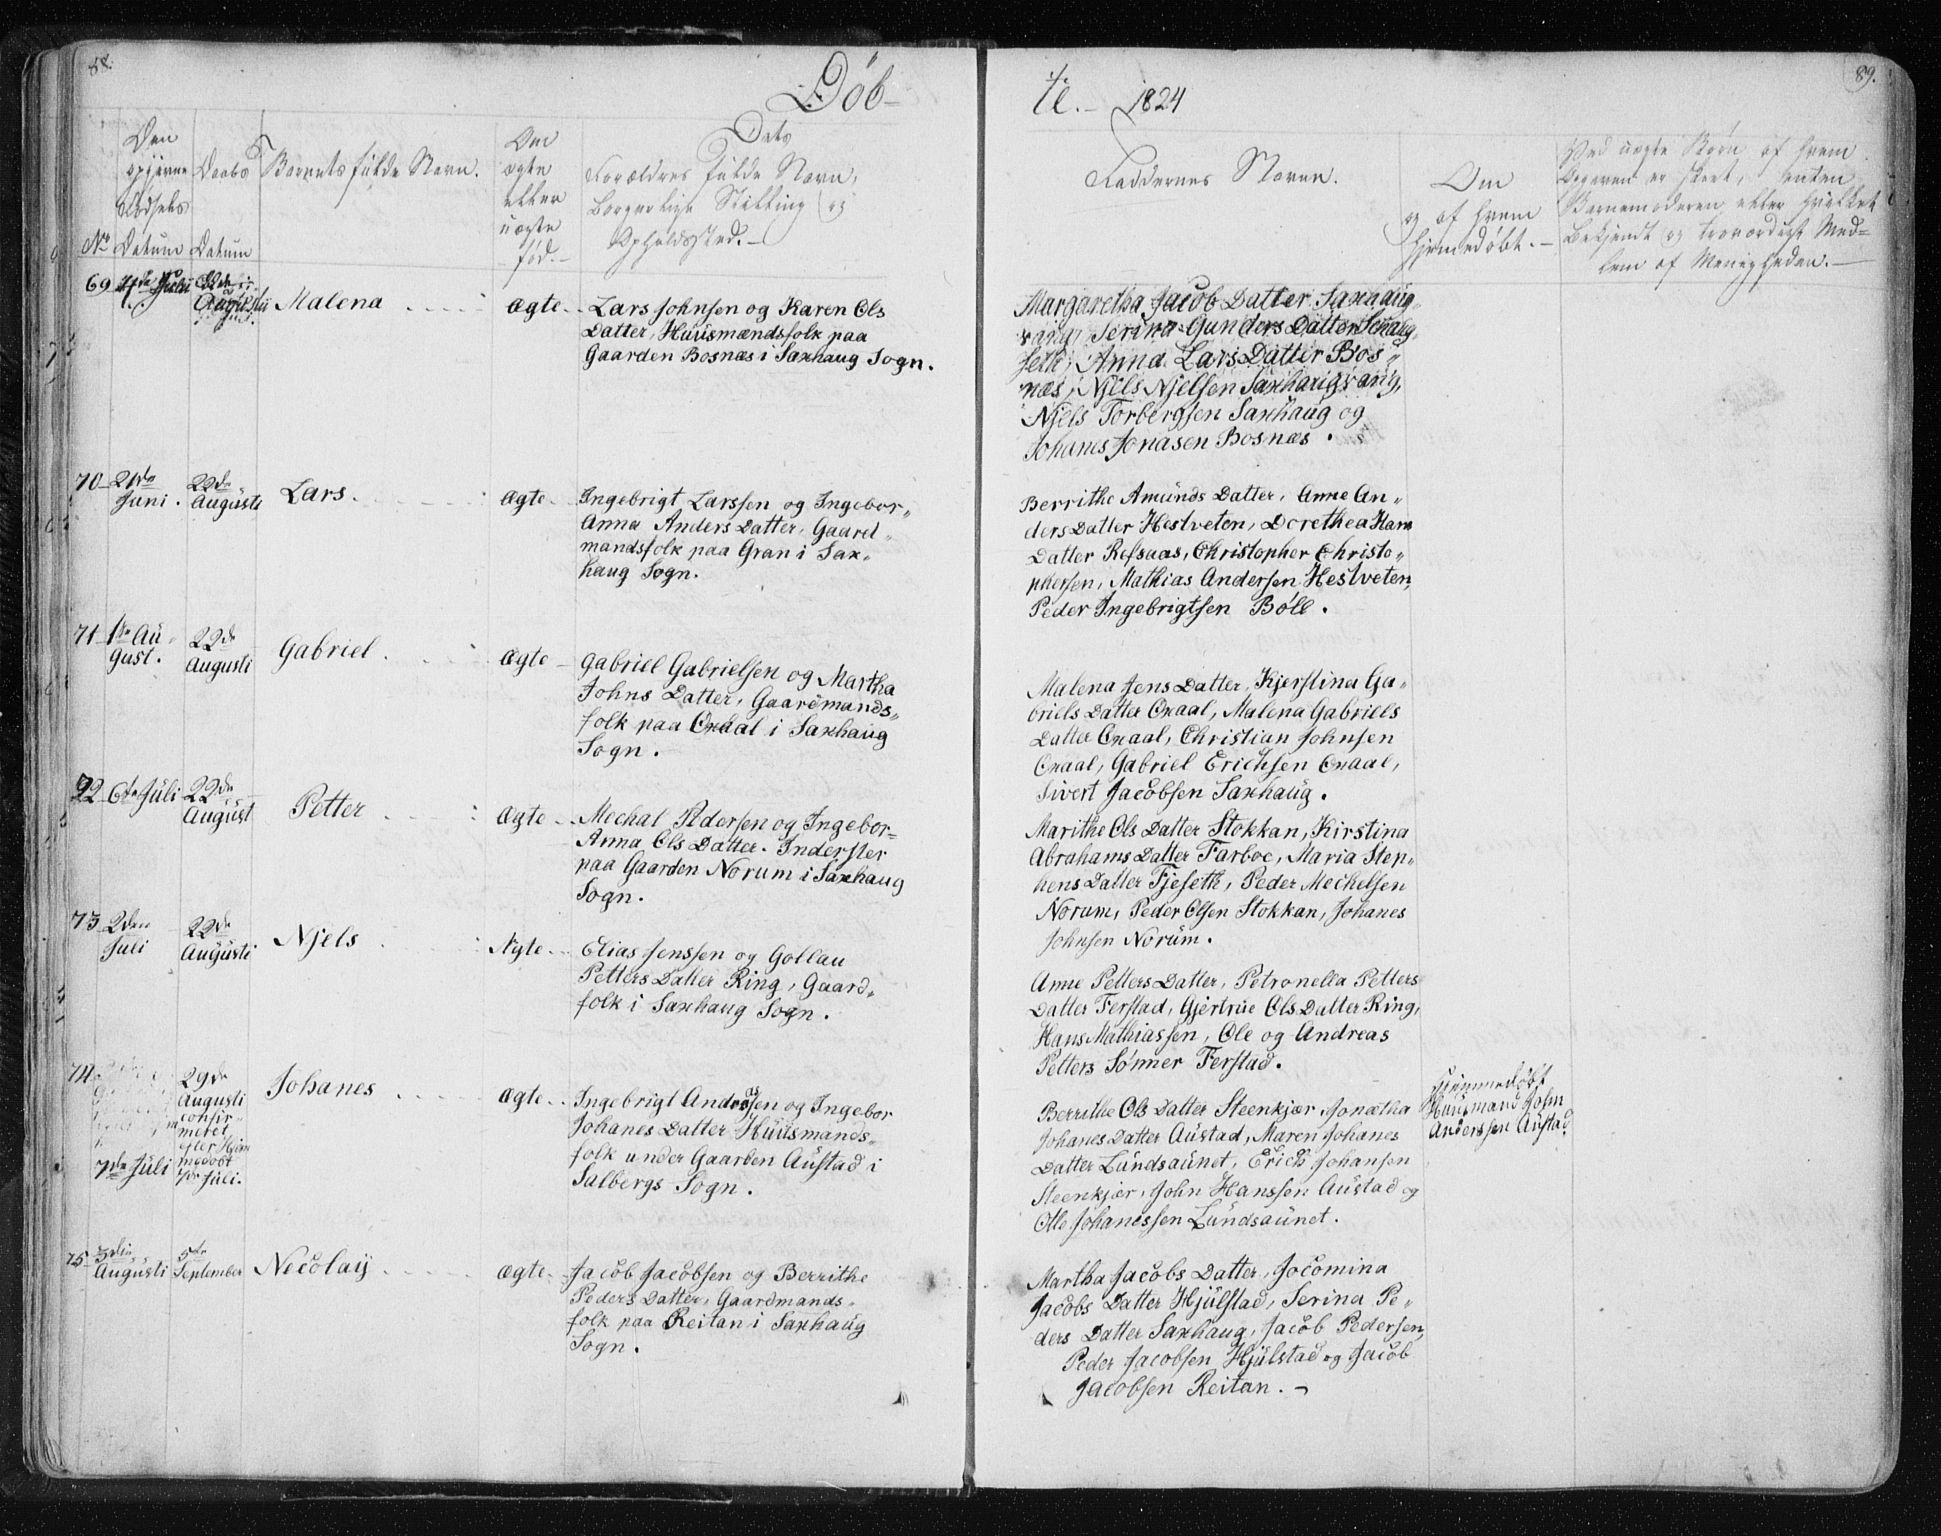 88.
Döb-
Den
opgivne
Fødsels
Datum
No
Daabs
Datum
Barnets fulde Navn.
Om
ægte
eller
uægte
fød.
Dets
Forældres fulde Navn,
borgerlige Stilling og
Opholdssted.-
69 Juli
Augusti
Malena
Ægte
Lars Johnsen og Karen Ols
Datter, Huusmændsfolk paa
Gaarden Bosnæs i Saxhaug Sogn.
70 21de Juni.
22de Augusti
Lars.
Ægte
Ingebrigt Larssen og Ingebor„
Anna Anders Datter, Gaard„
mandsfolk paa Gran i Sax„
haug Sogn.
71 1ste Au„
gust.
22de
Augusti
Gabriel
Ægte
Gabriel Gabrielsen og Martha
Johns Datter, Gaardmands„
folk paa Oxaal i Saxhaug
Sogn.
72 6te Juli
22de
August
Petter
Ægte
Mechal Pedersen og Ingebor=
Anna Ols Datter. Inderster
paa Gaarden Norum i Saxhaug
Sogn.
73 2den
Juli
22de
Augusti
Njels
Ægte
Elias Jenssen og Gollau
Petters Datter Ring, Gaard„
folk i Saxhaug Sogn.
74
7de Juli
29de
Augusti
confir„
meret
efter Hjem
medøbt
Juli.
Johanes
Ægte
Ingebrigt Andersen og Ingebor
Johanes Datter Huusmands„
folk under Gaarden Austad i
Salbergs Sogn.
75 3die
Augusti
5te
September
Necolay
Ægte
Jacob Jacobsen og Berrithe
Peders Datter, Gaardmands„
folk paa Reitan i Saxhaug
Sogn.
89.
te.- 1824
Faddernes Navne.
Om
og af hvem
hjemmedøbt.-
Ved uægte Børn af hvem
Opgaven er skeet, enten
Barnemoderen eller hvilket
bekjendt og troværdigt Med=
lem af Menigheden.-
Margaretha Jacob Datter Saxhaug„
vang, Serina Gunders Datter
Anna Lars Datter Bos„
næs, Njels Njelsen Saxhaugvang,
Njels Torbergsen Saxhaug og
Johanes Jonasen Bosnæs.
Berrithe Amunds Datter, Anne An„
ders Datter Hestveten, Dorethea Hans
Datter Refsaas, Christopher Christo„
phersen, Mathias Andersen Hestveten,
Peder Ingebrigtsen Böle.
Malena Jens Datter, Kjerstina Ga„
briels Datter Oxaal, Malena Gabriels
Datter Oxaal, Christian Johnsen
Oxaal, Gabriel Erichsen Oxaal,
Sivert Jacobsen Saxhaug.
Marithe Ols Datter Stokkan, Kirstina
Abrahams Datter Farboe, Maria Step„
hens Datter Tjeseth, Peder Mechelsen
Norum, Peder Olsen Stokkan, Johanes
Johnsen Norum.
Anne Petters Datter, Petronella Petters
Datter Ferstad, Gjertrue Ols Datter Ring,
Hans Mathiassen, Ole og Andreas
Petters Sønner Ferstad.
Berrithe Ols Datter Steenkjær, Jonætha
Johanes Datter Austad, Maren Johanes
Datter Lundsaunet, Erich Johansen
Steenkjær, John Hanssen Austad og
Otte Johanessen Lundsaunet.
Hjemmedöbt
Huusmand John
Anderssen Austad
Martha Jacobs Datter, Jocomina
Jacobs Datter Hjulstad, Serina Pe„
ders Datter Saxhaug, Jacob Pedersen,
Peder Jacobsen Hjulstad og Jacob
Jacobsen Reitan. -